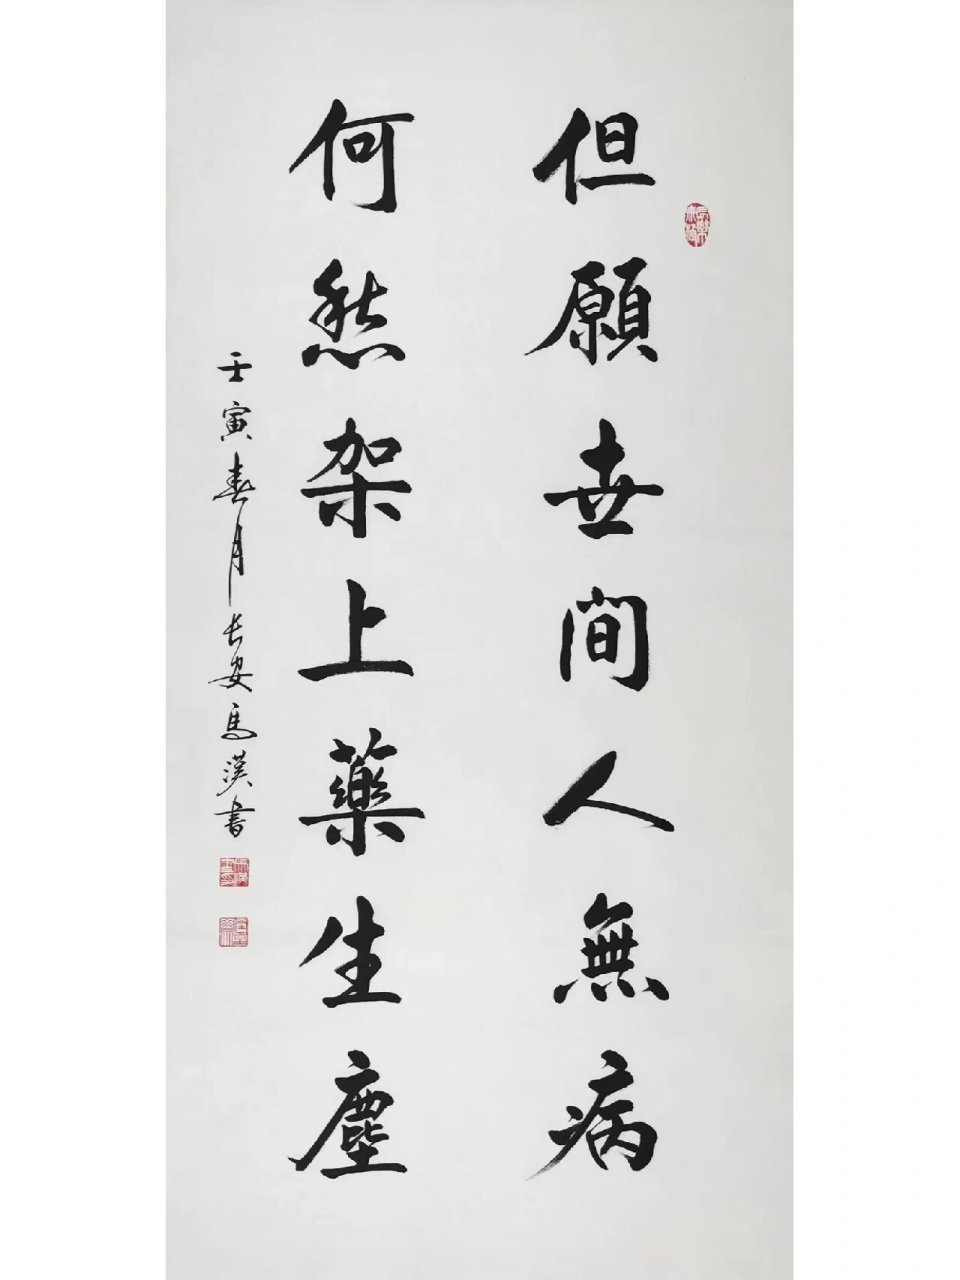 但願世間人無病
何愁架上藥生塵
壬寅春月長安馬漢書